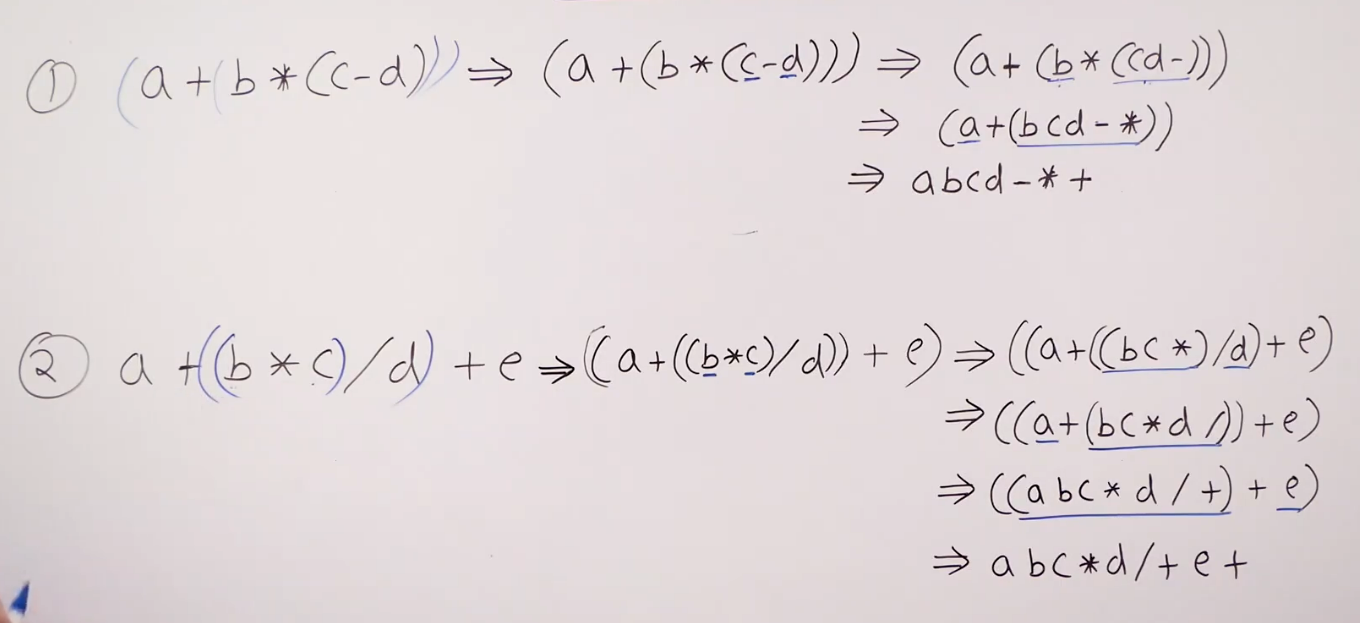 ① (a+(b*(c-d))) ⇒ (a+(b*(c-d))) ⇒ (a+(b*((cd-)))
⇒ (a+(bcd-*))
⇒ abcd-*+
② a+((b*c)/d)+e ⇒ ((a+((b*c)/d))+e) ⇒ ((a+((bc*)/d)+e)
⇒ ((a+(bc*d/))+e)
⇒ ((abc*d/+)+e)
⇒ abc*d/+e+